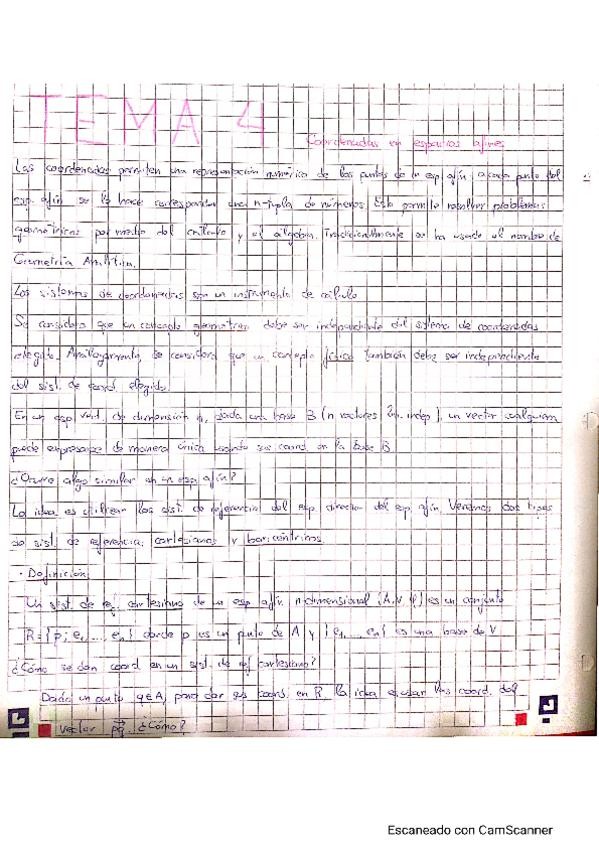 TEMA 4
Coordenadas en espacios afines
Las coordenadas permiten una representación numérica de los puntos de un esp. afín; a cada punto del
esp. afín se le hace corresponder una n-tupla de números. Esto permite resolver problemas
geométricos por medio del cálculo y el álgebra. Tradicionalmente se ha usado el nombre de
Geometría Analítica.
Los sistemas de coordenadas son un instrumento de cálculo
Se considera que un concepto geométrico debe ser independiente del sistema de coordenadas
elegido. Análogamente, se considera que un concepto físico también debe ser independiente
del sist. de coord. elegido.
En un esp. vect. de dimensión n, dada una base B (n vectores lin. indep.), un vector cualquiera
puede expresarse de manera única usando sus coord. en la base B
¿Ocurre algo similar en un esp. afín?
La idea es utilizar los sist. de referencia del esp. director del esp. afín. Veremos dos tipos
de sist. de referencia: cartesianos y baricéntricos
· Definición:
Un sist. de ref. cartesiano de un esp. afín n-dimensional (A, V, φ) es un conjunto
R={p; e₁, ..., eₙ} donde p es un punto de A y {e₁, ..., eₙ} es una base de V
¿Cómo se dan coord. en un sist. de ref. cartesiano?
Dado un punto q∈A, para dar sus coord. en R la idea es usar las coord. del
vector pq. ¿Cómo?
Escaneado con CamScanner